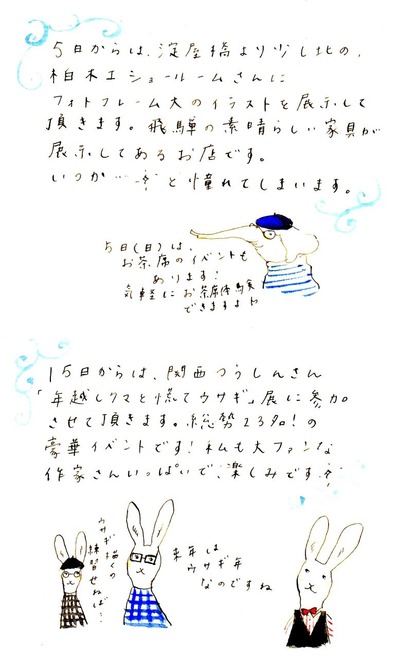 5日からは、淀屋橋より少し北の、
柏木工ショールームさんに
フォトフレーム大のイラストを展示して
頂きます。飛騨の素晴らしい家具が
展示してあるお店です。
いつか……と憧れてしまいます。
5日(日)は、
お茶席のイベントも
あります!
気軽にお茶席体験
できますよ
15日からは、関西つうしんさん
「年越しクマと慌てウサギ」展に参加
させて頂きます。総勢23名!の
豪華イベントです!私も大ファンな
作家さんいっぱいで、楽しみです
ウサギ描くの
練習せねば…
来年は
ウサギ年
なのですね